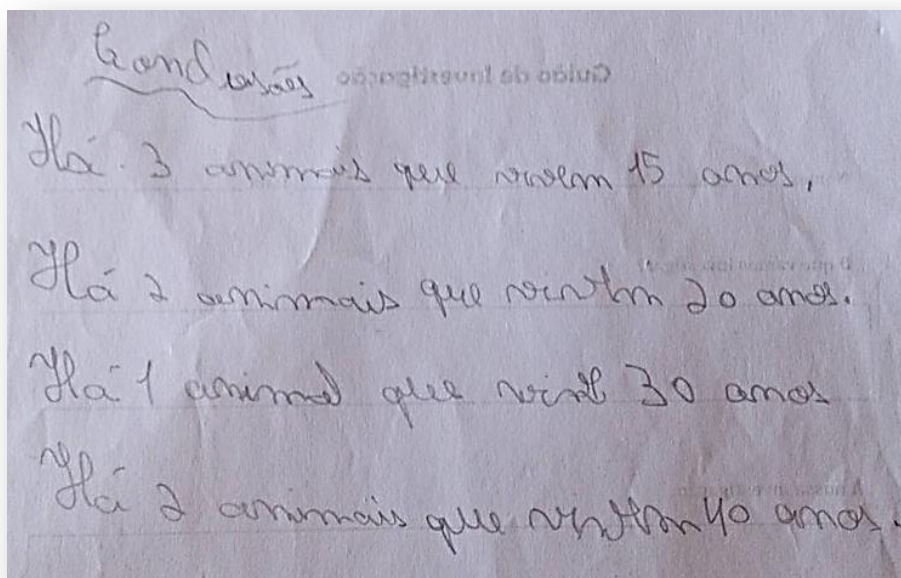 Conclusões
Há 3 animais que vivem 15 anos,
Há 2 animais que vivem 20 anos.
Há 1 animal que vive 30 anos
Há 2 animais que vivem 40 anos.